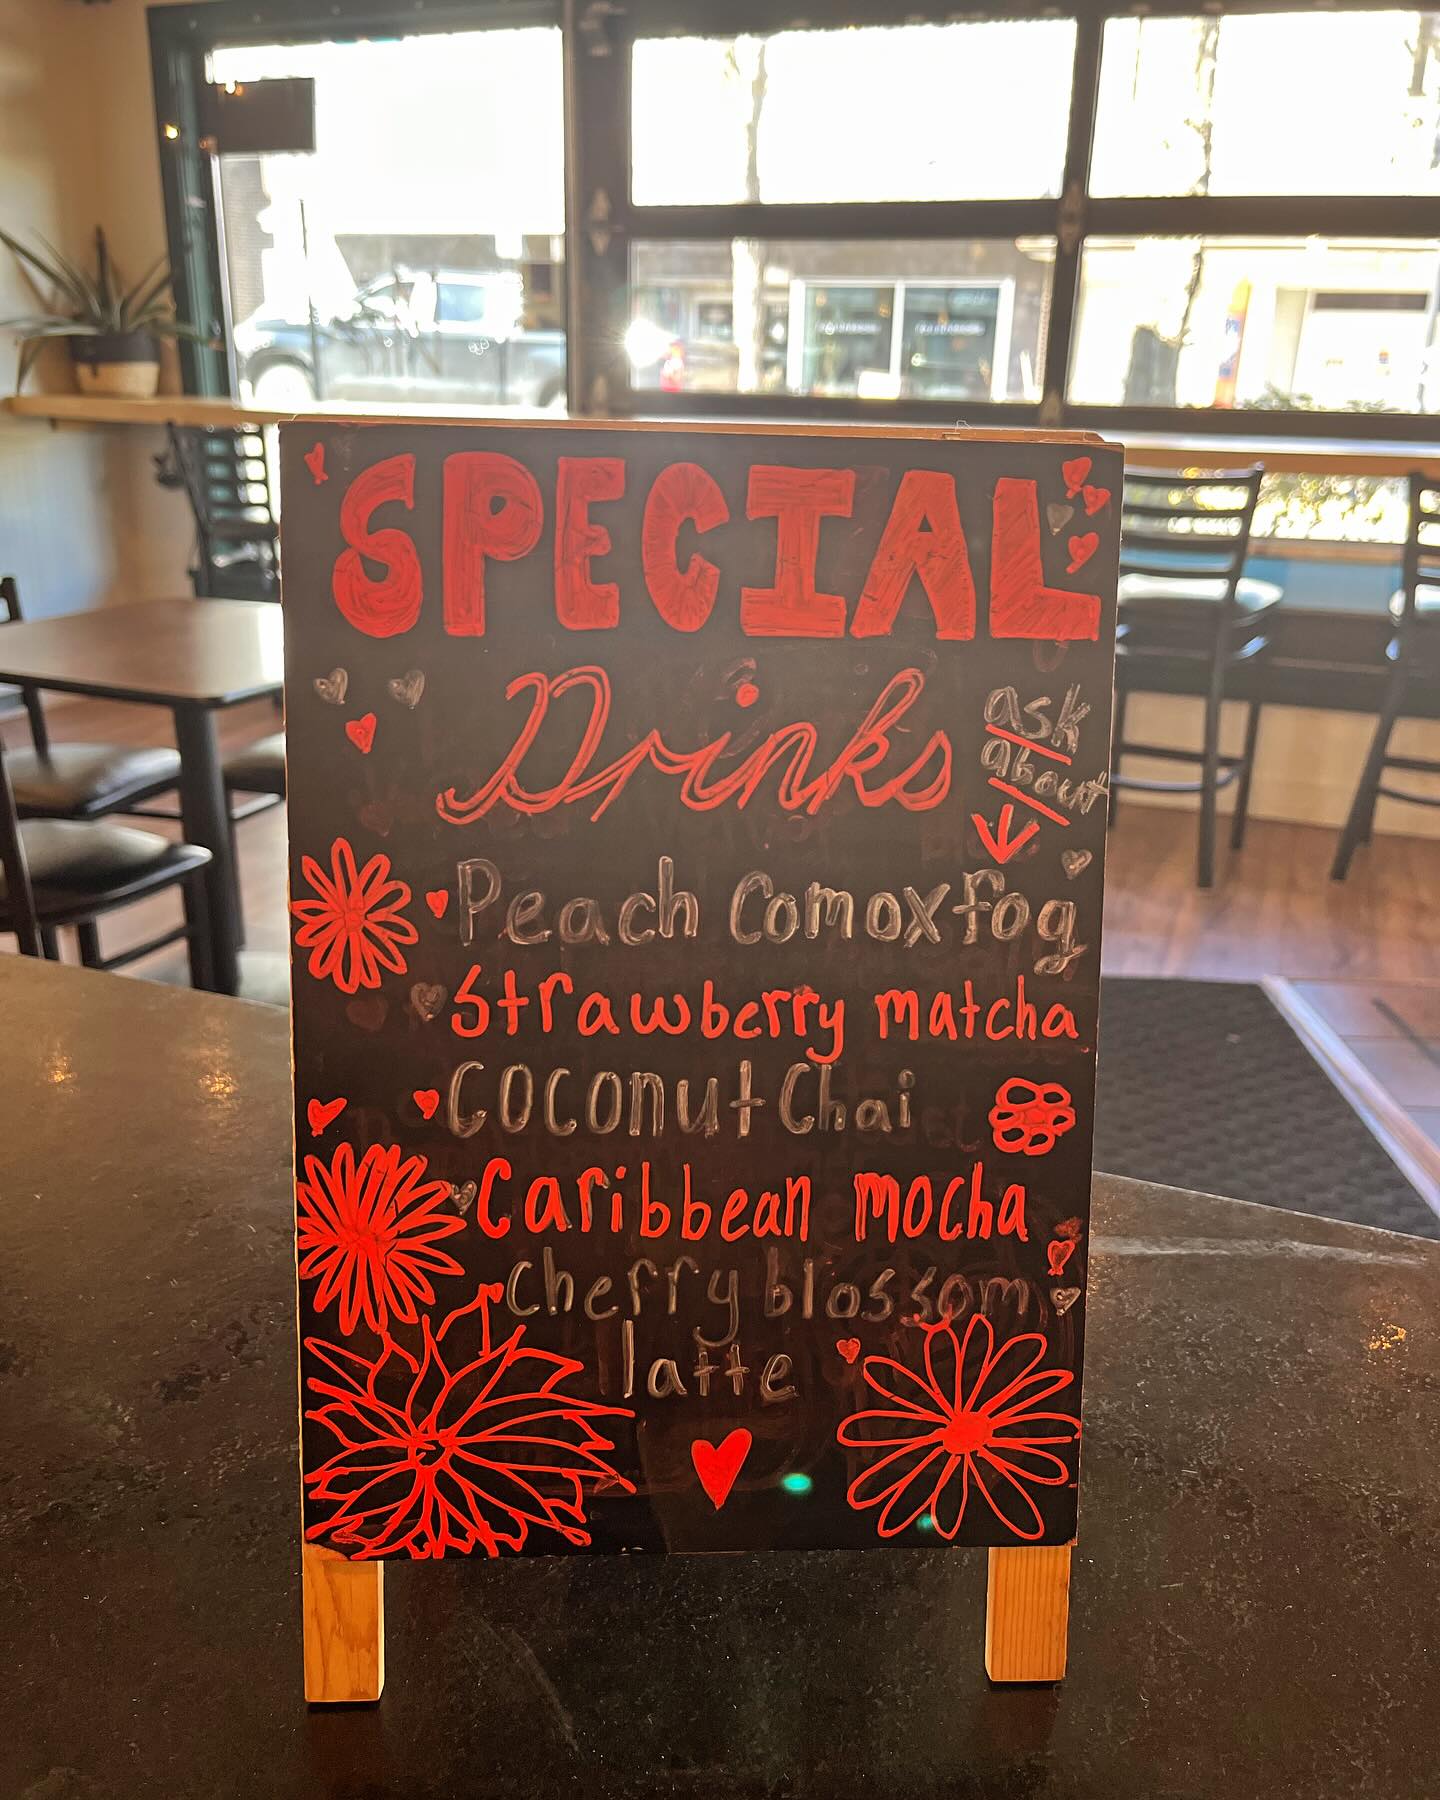 SPECIAL
Drinks
ask
about
Peach Comox fog
Strawberry matcha
Coconut Chai
Caribbean mocha
cherry blossom
latte